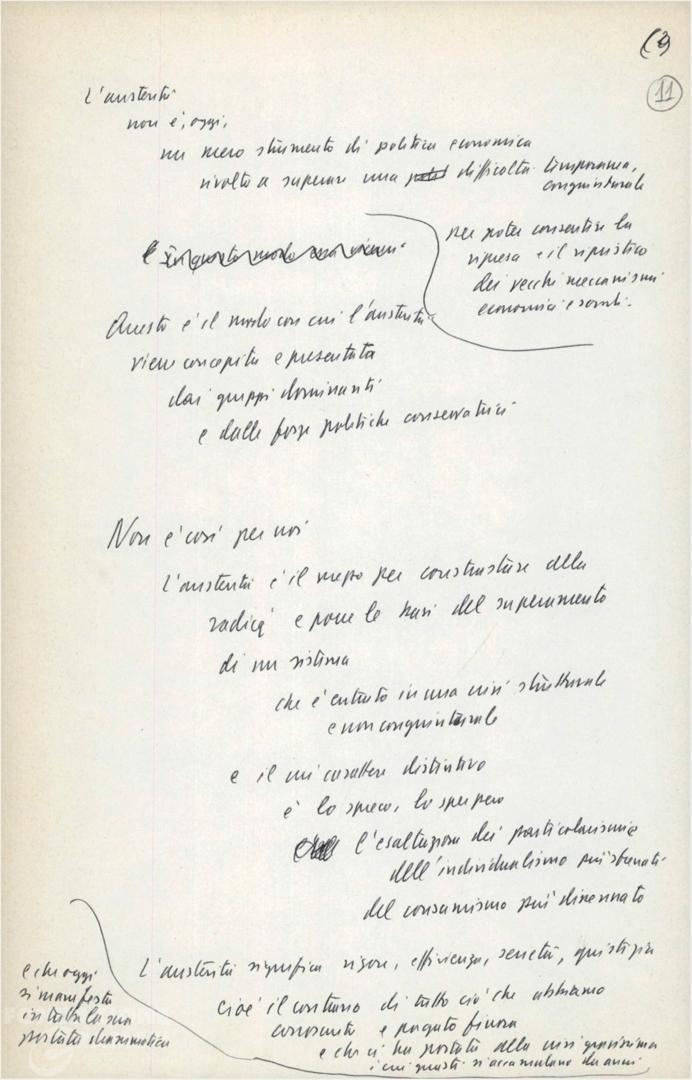 (3)
11
L'austerità
non è, oggi,
un mero strumento di politica economica
rivolto a superare una difficoltà temporanea,
congiunturale
per poter consentire la
ripresa e il ripristino
dei vecchi meccanismi
economici e sociali.
E in questo modo
Questo è il modo con cui l'austerità
viene concepita e presentata
dai gruppi dominanti
e dalle forze politiche conservatrici
Non è così per noi
L'austerità è il mezzo per contrastare alla
radice e porre le basi del superamento
di un sistema
che è entrato in una crisi strutturale
e non congiunturale
e il cui carattere distintivo
è lo spreco, lo sperpero
l'esaltazione dei particolarismi e
dell'individualismo più sfrenati
del consumismo più dissennato
L'austerità significa rigore, efficienza, serietà, giustizia
cioè il contrario di tutto ciò che abbiamo
conosciuto e pagato finora
e che ci ha portato alla crisi gravissima
i cui guasti si accumulano da anni
e che oggi
si manifesta
in tutta la sua
portata drammatica